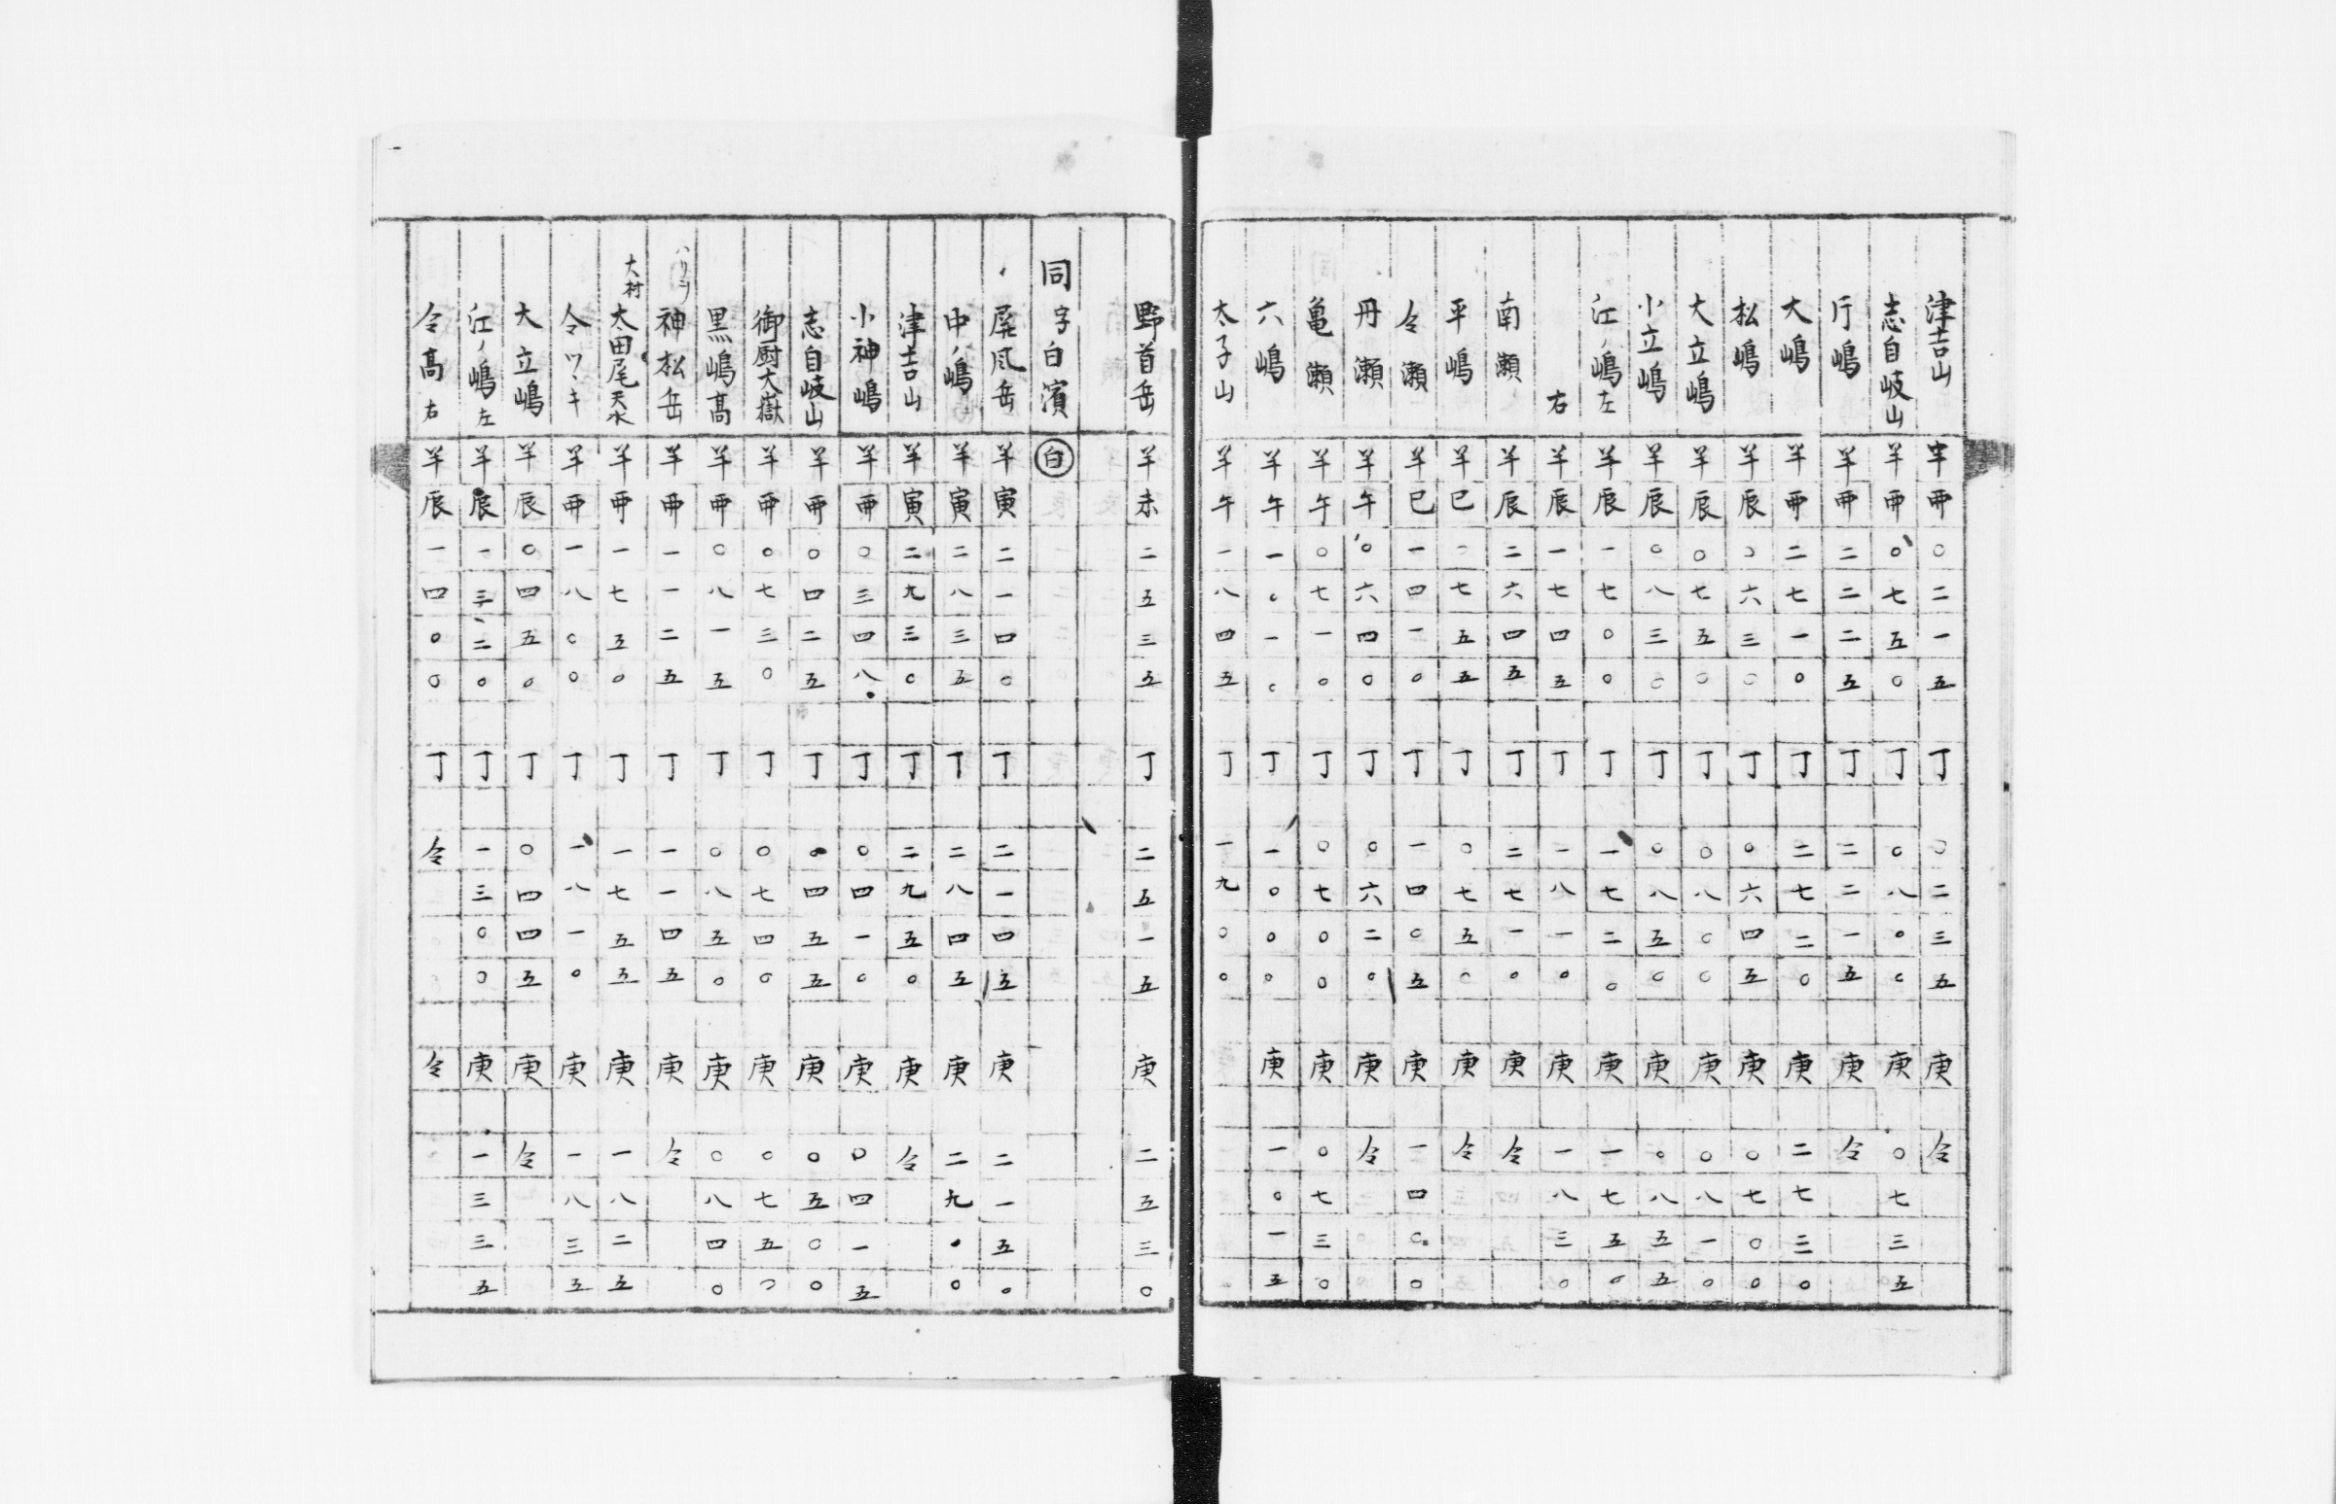 津吉山 羊 丣 〇二一五 丁 〇二三五 庚 仝
志自岐山 羊 丣 〇七五〇 丁 〇八〇〇 庚 〇七三五
斤嶋 羊 丣 二二二五 丁 二二一五 庚 仝
大嶋 羊 丣 二七一〇 丁 二七二〇 庚 二七三〇
松嶋 羊 辰 〇六三〇 丁 〇六四五 庚 〇七〇〇
大立嶋 羊 辰 〇七五〇 丁 〇八〇〇 庚 〇八一〇
小立嶋 羊 辰 〇八三〇 丁 〇八五〇 庚 〇八五五
江ノ嶋左 羊 辰 一七〇〇 丁 一七二〇 庚 一七五〇
右 羊 辰 一七四五 丁 一八一〇 庚 一八三〇
南瀬 羊 辰 二六四五 丁 二七一〇 庚 仝
平嶋 羊 巳 〇七五五 丁 〇七五〇 庚 仝
仝瀬 羊 巳 一四一〇 丁 一四〇五 庚 一四〇〇
丹瀬 羊 午 〇六四〇 丁 〇六二〇 庚 仝
亀瀬 羊 午 〇七一〇 丁 〇七〇〇 庚 〇七三〇
六嶋 羊 午 一〇一〇 丁 一〇〇〇 庚 一〇一五
太子山 羊 午 一八四五 丁 一九〇〇
野首岳 羊 未 二五三五 丁 二五一五 庚 二五三〇
同字白濱 白
屏風岳 羊 寅 二一四〇 丁 二一四五 庚 二一五〇
中ノ嶋 羊 寅 二八三五 丁 二八四五 庚 二九〇〇
津吉山 羊 寅 二九三〇 丁 二九五〇 庚 仝
小神嶋 羊 丣 〇三四八 丁 〇四一〇 庚 〇四一五
志自岐山 羊 丣 〇四二五 丁 〇四五五 庚 〇五〇〇
御厨大嶽 羊 丣 〇七三〇 丁 〇七四〇 庚 〇七五〇
黒嶋高 羊 丣 〇八一五 丁 〇八五〇 庚 〇八四〇
ハリヲ 神松岳 羊 丣 一一二五 丁 一一四五 庚 仝
大村 太田尾 羊 丣 一七五〇 丁 一七五五 庚 一八二五
仝ツヽキ 羊 丣 一八〇〇 丁 一八一〇 庚 一八三五
大立嶋 羊 辰 〇四五〇 丁 〇四四五 庚 仝
江ノ嶋左 羊 辰 一三二〇 丁 一三〇〇 庚 一三三五
仝高右 羊 辰 一四〇〇 丁 仝 仝